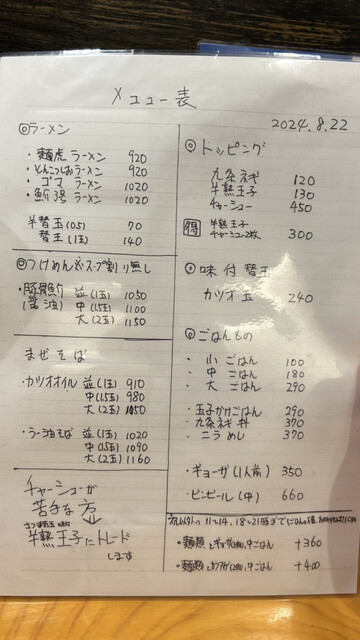 メニュー表
2024.8.22
◎ラーメン
・麺虎ラーメン 920
・とんこつしおラーメン 920
・ゴマラーメン 1020
・ラーメン 1020
半替玉(0.5) 70
替玉(1玉) 140
◎つけめん※スープ割り無し
・豚骨魚介(醤油) 並(1玉) 1050
中(1.5玉) 1100
大(2玉) 1150
まぜそば
・カツオオイル 並(1玉) 910
中(1.5玉) 980
大(2玉) 1050
・ラー油そば 並(1玉) 1020
中(1.5玉) 1090
大(2玉) 1160
チャーシューが
苦手な方
半熟玉子にトレード
します
◎トッピング
九条ネギ 120
半熟玉子 130
チャーシュー 450
得 半熟玉子
チャーシュー2枚 300
◎味付替玉
カツオ玉 240
◎ごはんもの
・小ごはん 100
・中ごはん 180
・大ごはん 290
・玉子かけごはん 290
・九条ネギ丼 370
・ニラめし 370
・ギョーザ(1人前) 350
・ビンビール(中) 660
11〜14、18〜21時まで
・麺類とギョーザ 中ごはん +360
・麺類と 中ごはん +400